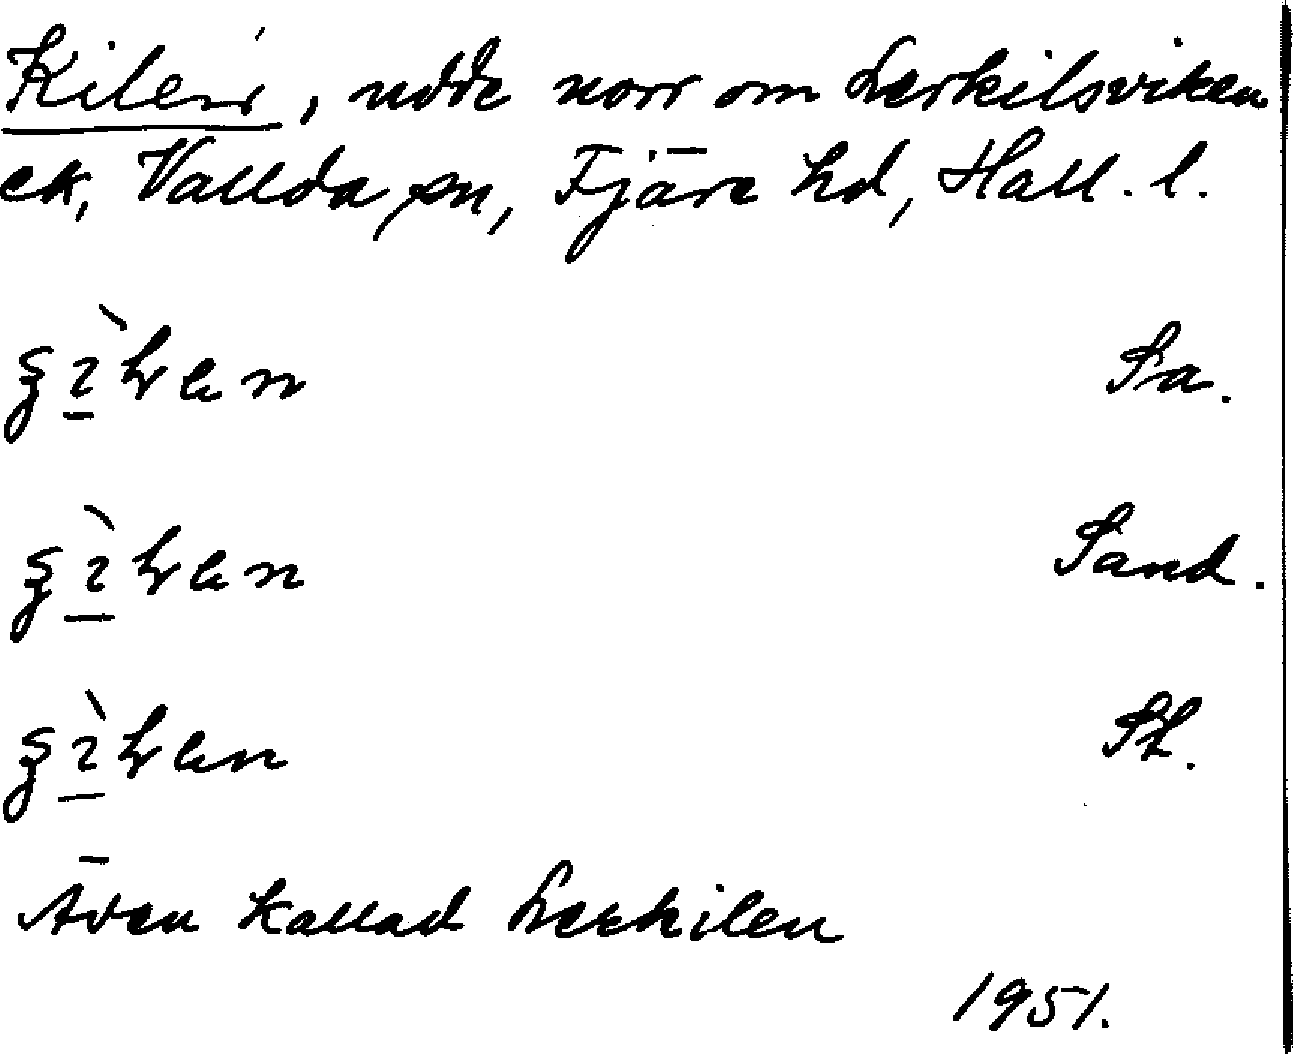 Kilen, udde norr om Lerkilsviken
ek, Vallda sn, Fjäre hd, Hall. l.
Sa.
Sand.
St.
Även kallad Lerkilen
1951.